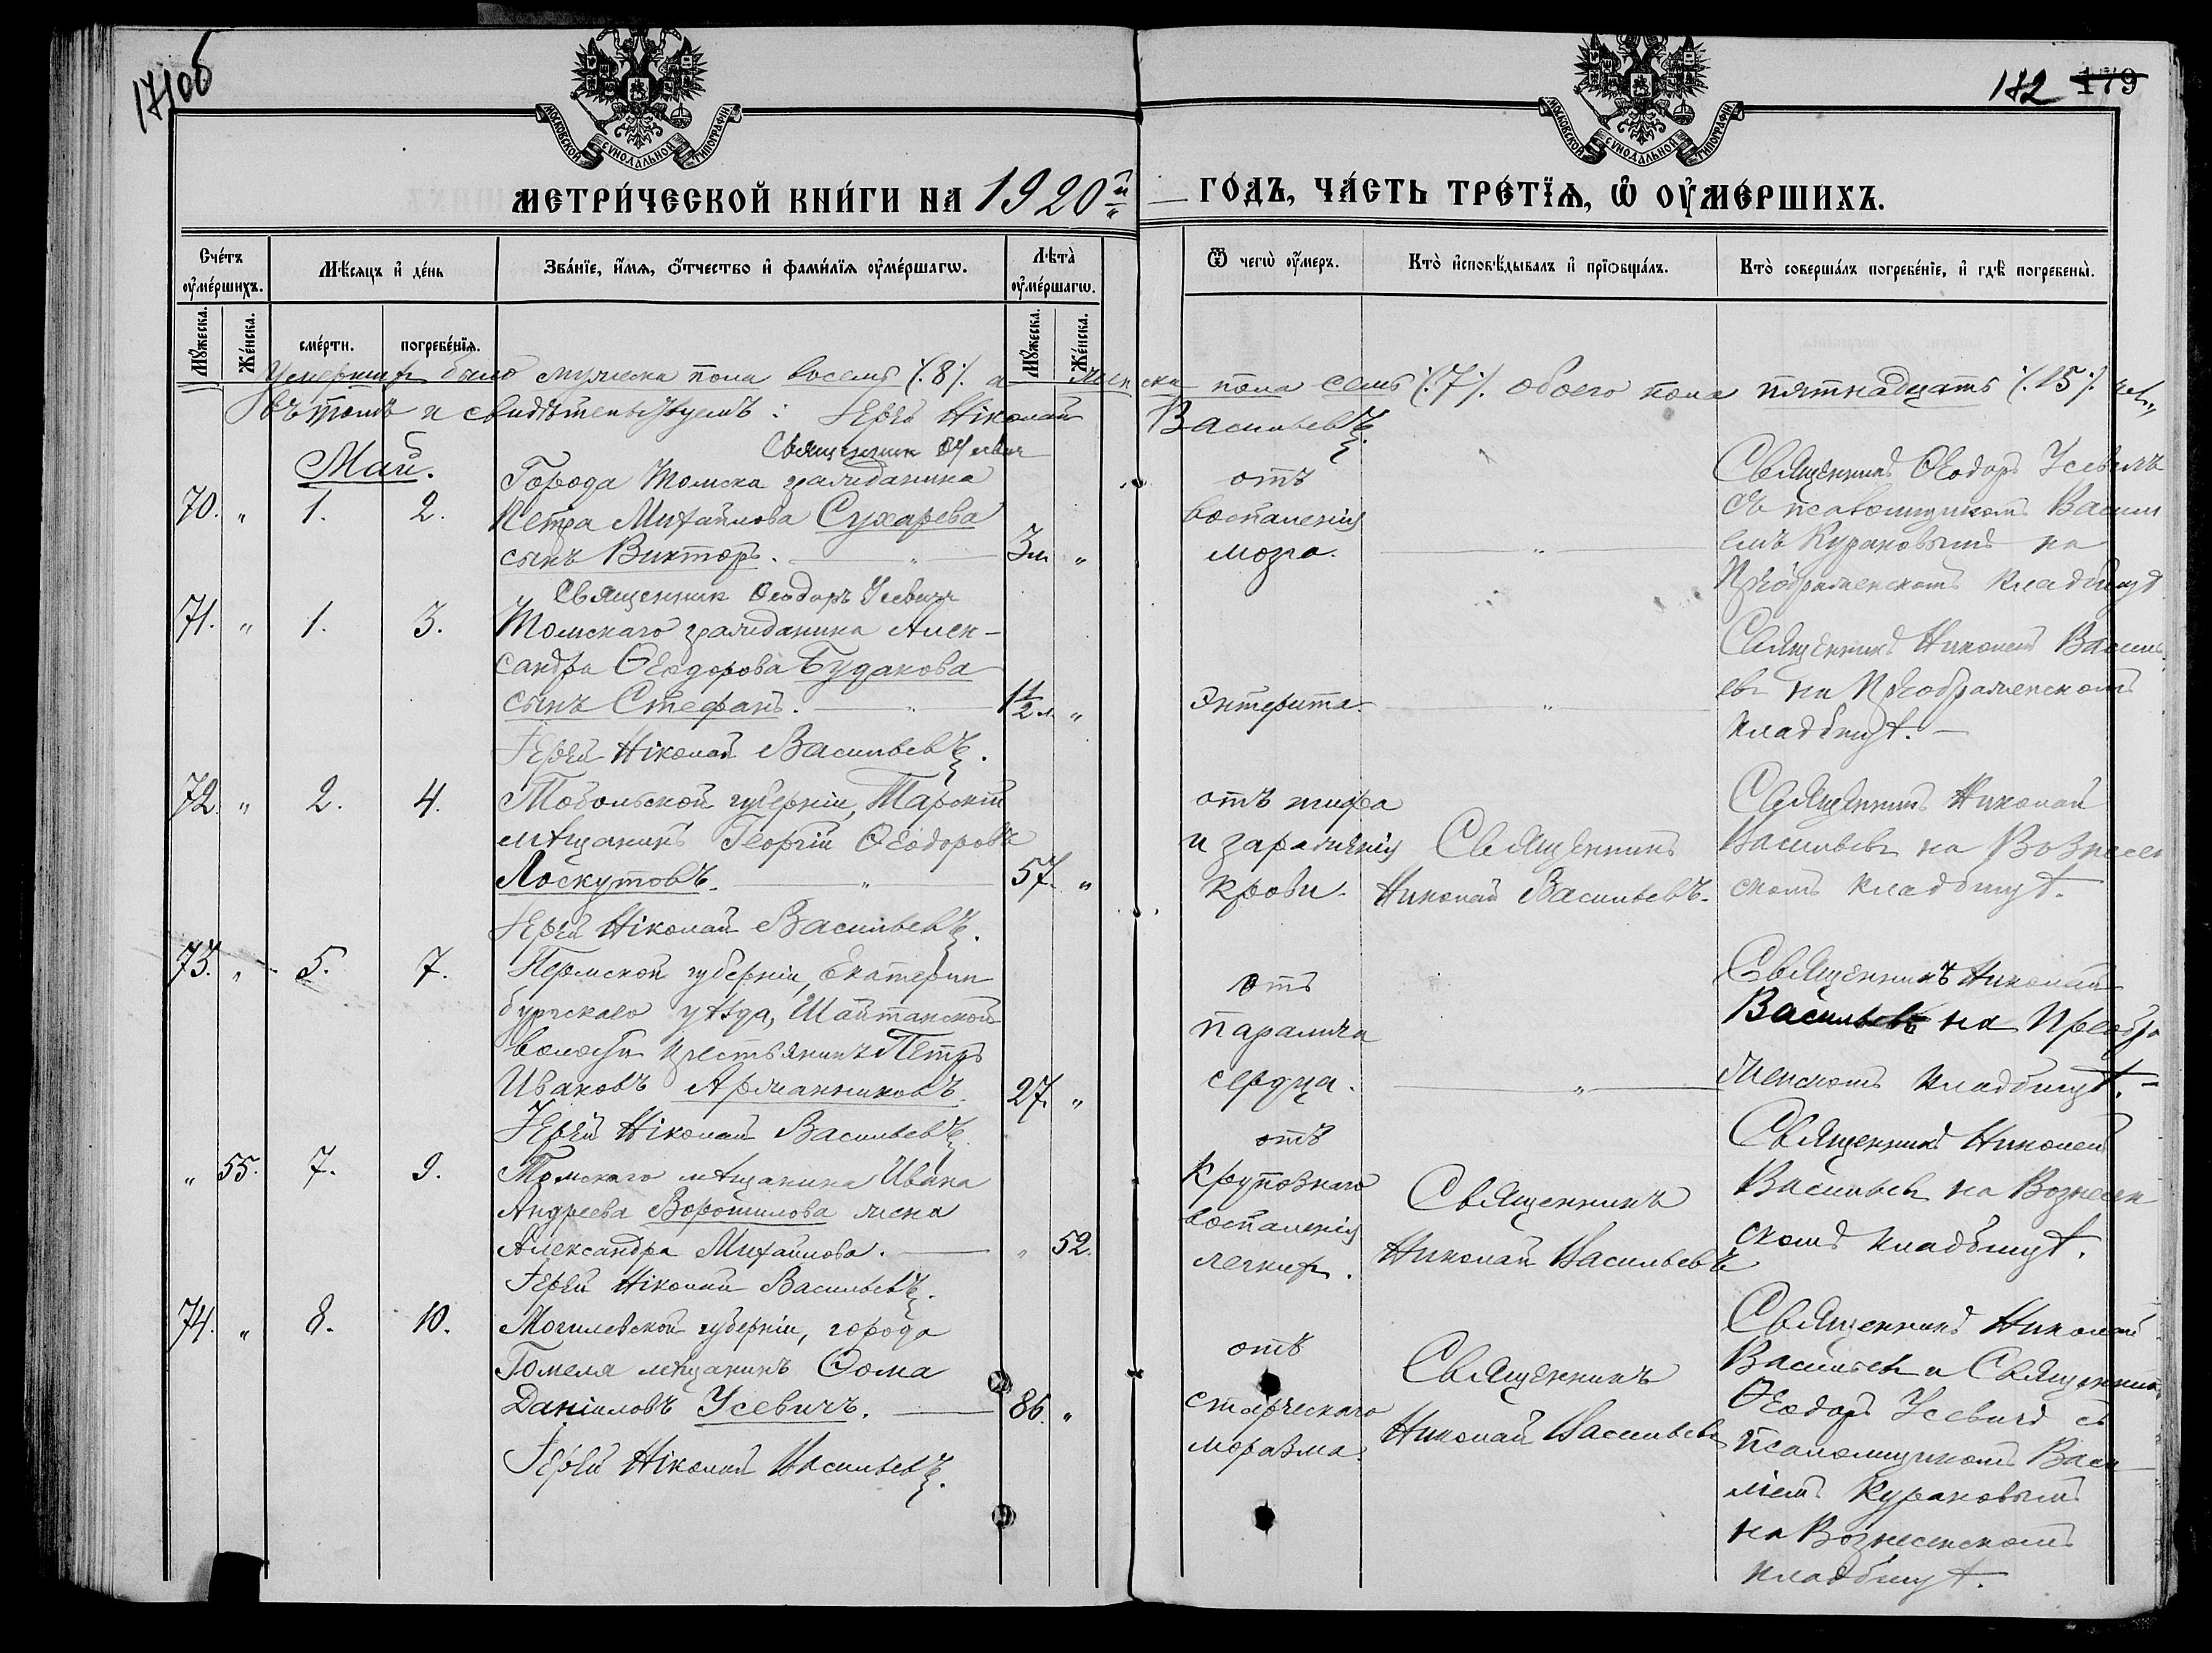 171об
182 179
МОСКОВСКОЙ СѴНОДАЛЬНОЙ ТИПОГРАФІИ
МОСКОВСКОЙ СѴНОДАЛЬНОЙ ТИПОГРАФІИ
МЕТРИ́ЧЕСКОЙ КНИ́ГИ НА 1920й ГОДЪ, ЧА́СТЬ ТРЕ́ТЇѦ, Ѡ҆ ОУ҆МЕ́РШИХЪ.
Сче́тъ оу҆ме́ршихъ.
Мѣ́сяцъ и҆ де́нь
Зва́нїе, и҆́мѧ, ѻ҆́тчество и҆ фами́лїѧ оу҆ме́ршагѡ.
Лѣ́та оу҆ме́ршагѡ.
Ѿ чегѡ̀ оу҆́меръ.
Кто̀ и҆сповѣ́дывалъ и҆ прїѡбща́лъ.
Кто̀ соверша́лъ погребе́нїе, и҆ гдѣ̀ погребены̀.
Мꙋ́жеска.
Же́нска.
сме́рти.
погребе́нїѧ.
Мꙋ́жеска.
Же́нска.
Умершихъ было мужеска пола восемь /.8/. а женска пола семь /.7/. обоего пола пятнадцать /.15/. чел.
въ томъ и свидѣтельствуемъ: Іерей Николай Васильевъ.
Священник Усевич
Май.
70. " 1. 2.
Города Томска гражданина
Петра Михайлова Сухарева
сынъ Викторъ. — " — 3м "
отъ
воспаленія
мозга. — " —
Священникъ Ѳеодоръ Усевичъ
съ псаломщикомъ Васили
емъ Курановымъ на
Преображенскомъ кладбищѣ
Священник Ѳеодоръ Усевичъ
71. " 1. 3.
Томскаго гражданина Алек-
сандра Ѳеодорова Будакова
сынъ Стефанъ. — " — 1½л. "
Энтерита. — " —
Священникъ Николай Василь
евъ на Преображенскомъ
кладбищѣ. —
Іерей Николай Васильевъ.
72. " 2. 4.
Тобольской губерніи, Тарскій
мѣщанинъ Георгій Ѳеодоровъ
Лоскутовъ. — " — 57. "
отъ тифа
и зараженія
крови.
Священникъ
Николай Васильевъ.
Священникъ Николай
Васильевъ на Вознесен
скомъ кладбищѣ.
Іерей Николай Васильевъ.
73. " 5. 7.
Пермской губерніи, Екатерин
бургскаго уѣзда, Шайтанской
волости крестьянинъ Петръ
Ивановъ Арманниковъ. 27. "
отъ
паралича
сердца. — " —
Священникъ Николай
Васильевъ на Преобра
женскомъ кладбищѣ. —
Іерей Николай Васильевъ.
" 55. 7. 9.
Томскаго мѣщанина Ивана
Андреева Ворошилова жена
Александра Михайлова. — " 52.
отъ
крупознаго
воспаленія
легкихъ.
Священникъ
Николай Васильевъ
Священникъ Николай
Васильевъ на Вознесен
скомъ кладбищѣ.
Іерей Николай Васильевъ.
74. " 8. 10.
Могилевской губерніи, города
Гомеля мѣщанинъ Ѳома
Даніиловъ Усевичъ. — 86. "
отъ
старческаго
моразма.
Священникъ
Николай Васильевъ
Священникъ Николай
Васильевъ и Священникъ
Ѳеодоръ Усевичъ съ
псаломщикомъ Васи
ліемъ Курановымъ
на Вознесенскомъ
кладбищѣ.
Іерей Николай Васильевъ.